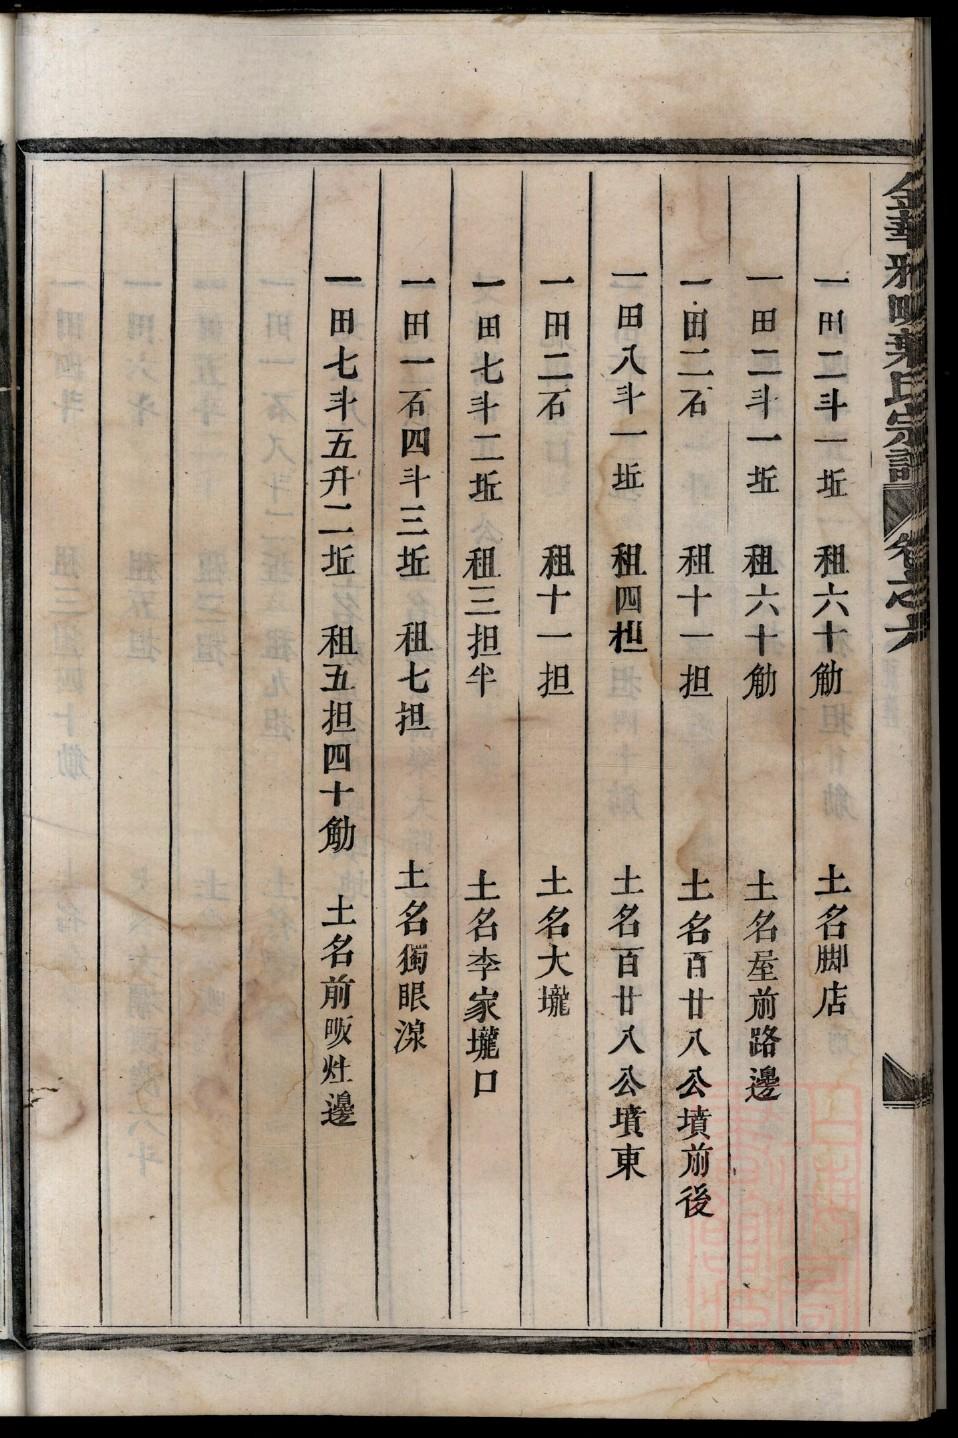 金華雅畈葉氏宗譜 卷之六
一田二斗一坵 租六十觔 土名脚店
一田二斗一坵 租六十觔 土名屋前路邊
一田二石 租十一担 土名百廿八公墳前後
一田八斗一坵 租四担 土名百廿八公墳東
一田二石 租十一担 土名大壠
一田七斗二坵 租三担半 土名李家壠口
一田一石四斗三坵 租七担 土名獨眼湶
一田七斗五升二坵 租五担四十觔 土名前畈灶邊